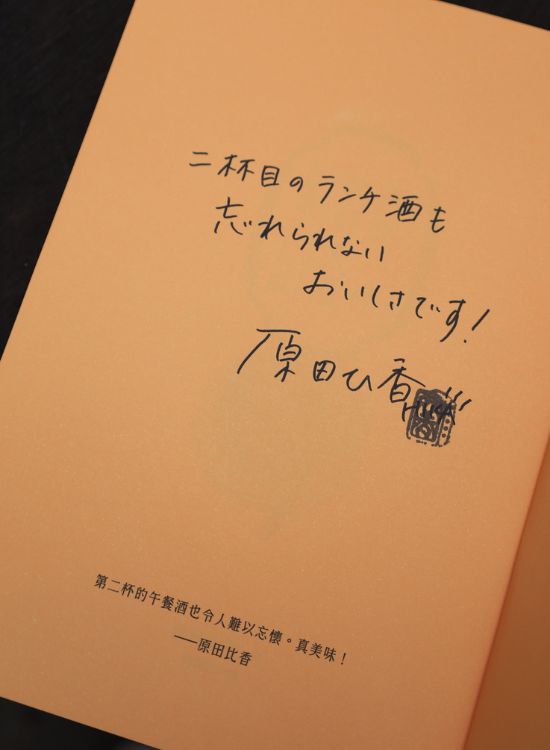 二杯目のランチ酒も
忘れられない
おいしさです!
原田ひ香
第二杯的午餐酒也令人難以忘懷。真美味！
──原田比香